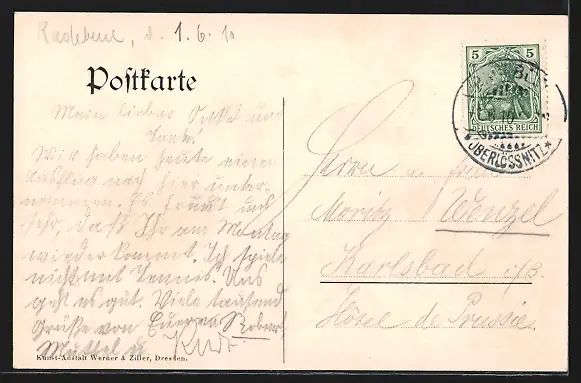 Radebeul, d. 1.6.10
Postkarte
Mein lieber Onkel und
Tante!
Wir haben heute einen
Ausflug nach hier unter-
nommen. Es freut uns
sehr, daß Ihr am Montag
wiederkommt. Ich spiele
nicht mit Tennis. Uns
geht es gut. Viele tausend
Grüße von Eueren Robert
Muttel u. Kurt
Kunst-Anstalt Werner & Ziller, Dresden.
5 5
DEUTSCHES REICH
OBERLÖSSNITZ
Herrn u. Frau
Moritz Wenzel
Karlsbad i/B
Hôtel de Prussie.